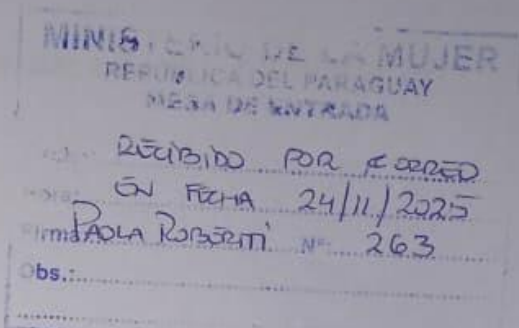 MINISTERIO DE LA MUJER
REPUBLICA DEL PARAGUAY
MESA DE ENTRADA
RECIBIDO POR CORREO
Hora: EN FECHA 24/11/2025
Firma PAOLA ROBERTI Nº: 263
Obs.: